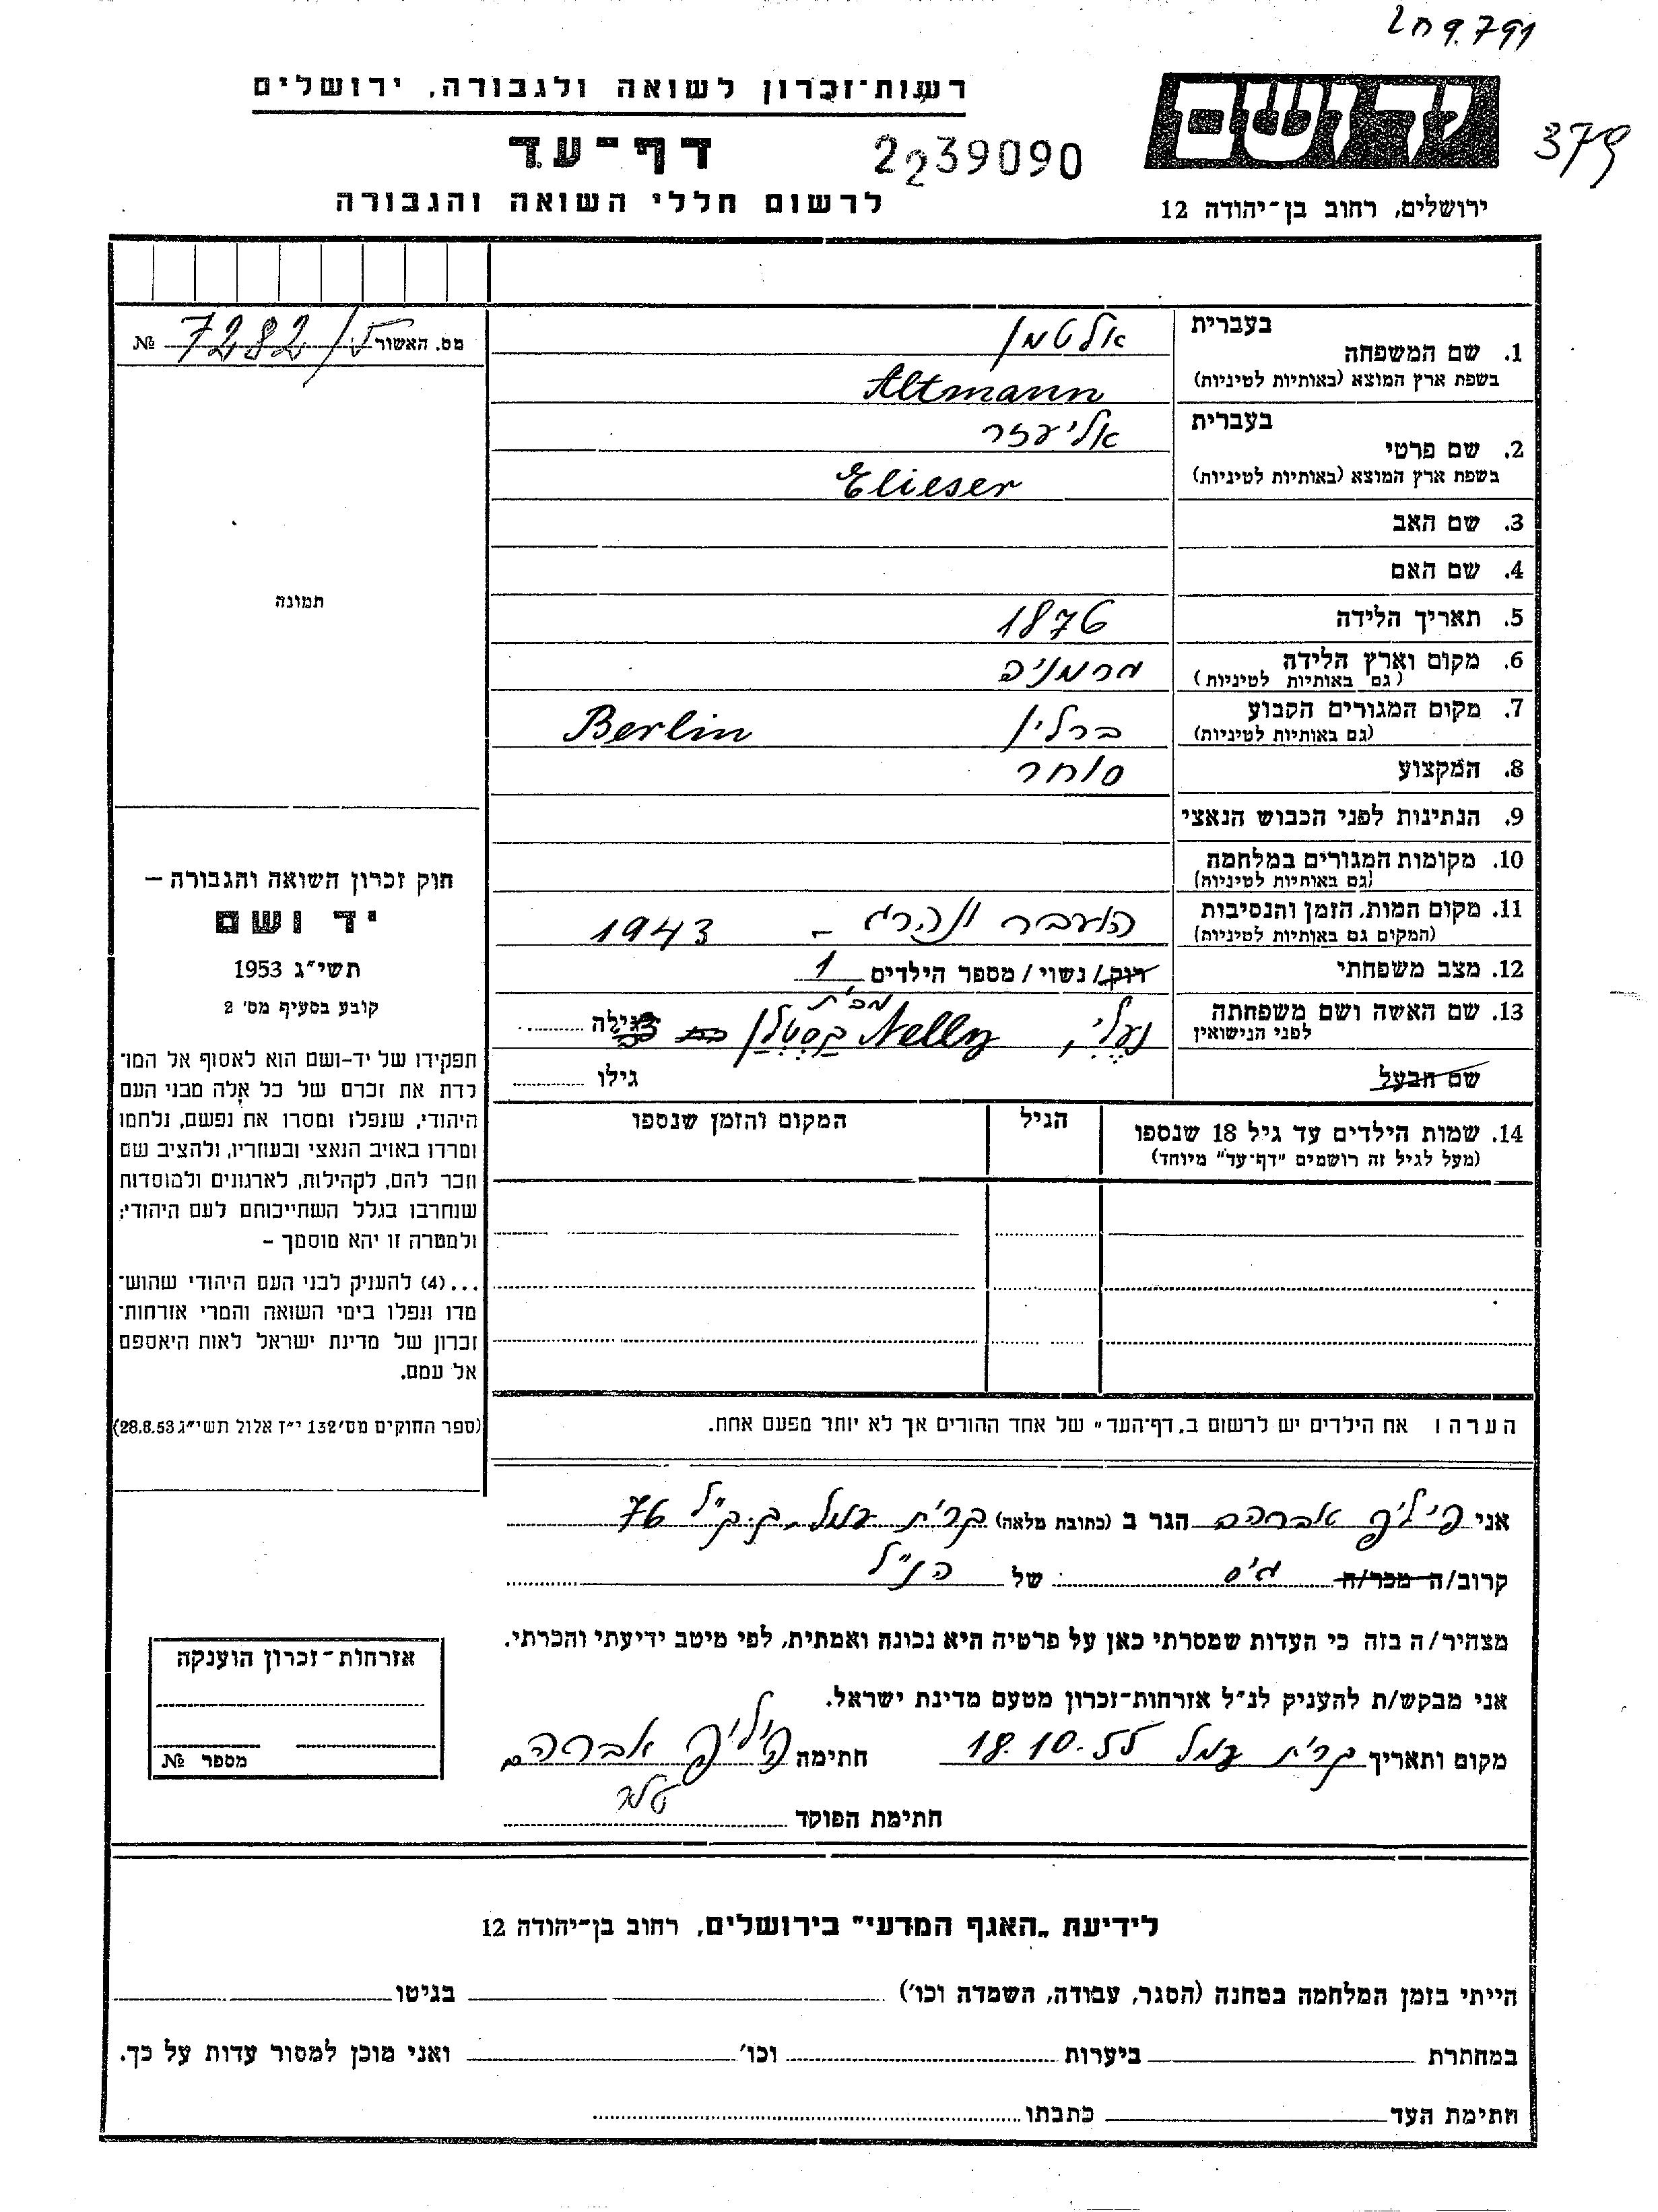 791.פ חל
379
ידושם
ירושלים, רחוב בן־יהודה 12
רשות־זכרון לשואה ולגבורה, ירושלים
דף־עד
2239090
לרשום חללי השואה והגבורה
מס. האשור 7282/ №
1. שם המשפחה בעברית אלטמן
בשפת ארץ המוצא (באותיות לטיניות) Altmann
2. שם פרטי בעברית אליעזר
בשפת ארץ המוצא (באותיות לטיניות) Elieser
3. שם האב
4. שם האם
5. תאריך הלידה 1876
6. מקום וארץ הלידה גרמניה
(גם באותיות לטיניות)
7. מקום המגורים הקבוע ברלין Berlin
(גם באותיות לטיניות)
8. המקצוע סוחר
9. הנתינות לפני הכבוש הנאצי
10. מקומות המגורים במלחמה
(גם באותיות לטיניות)
11. מקום המות, הזמן והנסיבות הועבר ונהרג - 1943
(המקום גם באותיות לטיניות)
12. מצב משפחתי רוק/נשוי/מספר הילדים 1
13. שם האשה ושם משפחתה נעלי, Nelly מבית גילה
לפני הנישואין
שם הבעל גילו
14. שמות הילדים עד גיל 18 שנספו הגיל המקום והזמן שנספו
(מעל לגיל זה רושמים "דף־עד" מיוחד)
הערה ו את הילדים יש לרשום ב„דף־העד" של אחד ההורים אך לא יותר מפעם אחת.
תמונה
חוק זכרון השואה והגבורה –
יד ושם
תשי"ג 1953
קובע בסעיף מס' 2
תפקידו של יד-ושם הוא לאסוף אל המו־
לדת את זכרם של כל אלה מבני העם
היהודי, שנפלו ומסרו את נפשם, נלחמו
ומרדו באויב הנאצי ובעוזריו, ולהציב שם
וזכר להם, לקהילות, לארגונים ולמוסדות
שנחרבו בגלל השתייכותם לעם היהודי;
ולמטרה זו יהא מוסמך –
...(4) להעניק לבני העם היהודי שהוש־
מדו ונפלו בימי השואה והמרי אזרחות־
זכרון של מדינת ישראל לאות היאספם
אל עמם.
(ספר החוקים מס' 132 י"ז אלול תשי"ג 28.8.53)
אני פיליפ אברהם הגר ב (כתובת מלאה) קרית עמל, ק.ק"ל 76
קרוב/ה מכר/ה גיס של הנ"ל
מצהיר/ה בזה כי העדות שמסרתי כאן על פרטיה היא נכונה ואמתית, לפי מיטב ידיעתי והכרתי.
אני מבקש/ת להעניק לנ"ל אזרחות־זכרון מטעם מדינת ישראל.
מקום ותאריך קרית עמל 18.10.55 חתימה פיליפ אברהם
חתימת הפוקד
אזרחות־זכרון הוענקה
מספר №
לידיעת „האגף המדעי" בירושלים, רחוב בן־יהודה 12
הייתי בזמן המלחמה במחנה (הסגר, עבודה, השמדה וכו') בגיטו
במחתרת ביערות וכו' ואני מוכן למסור עדות על כך.
חתימת העד כתבתו